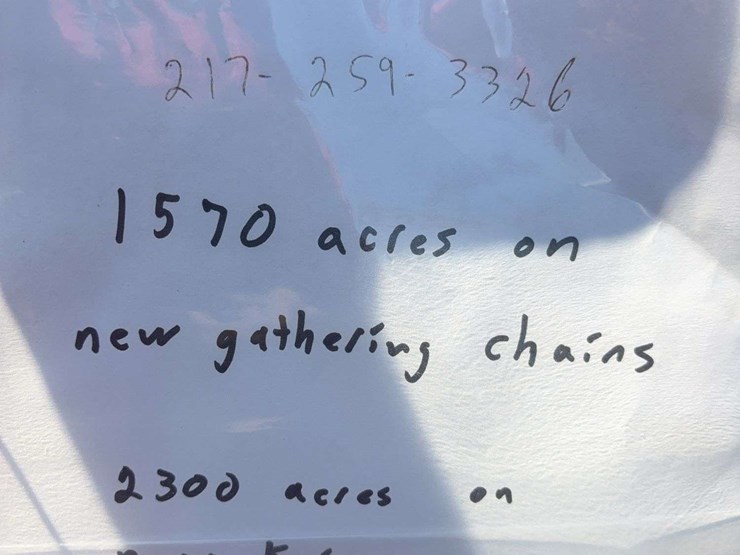 217-259-3326
1570 acres on
new gathering chains
2300 acres on